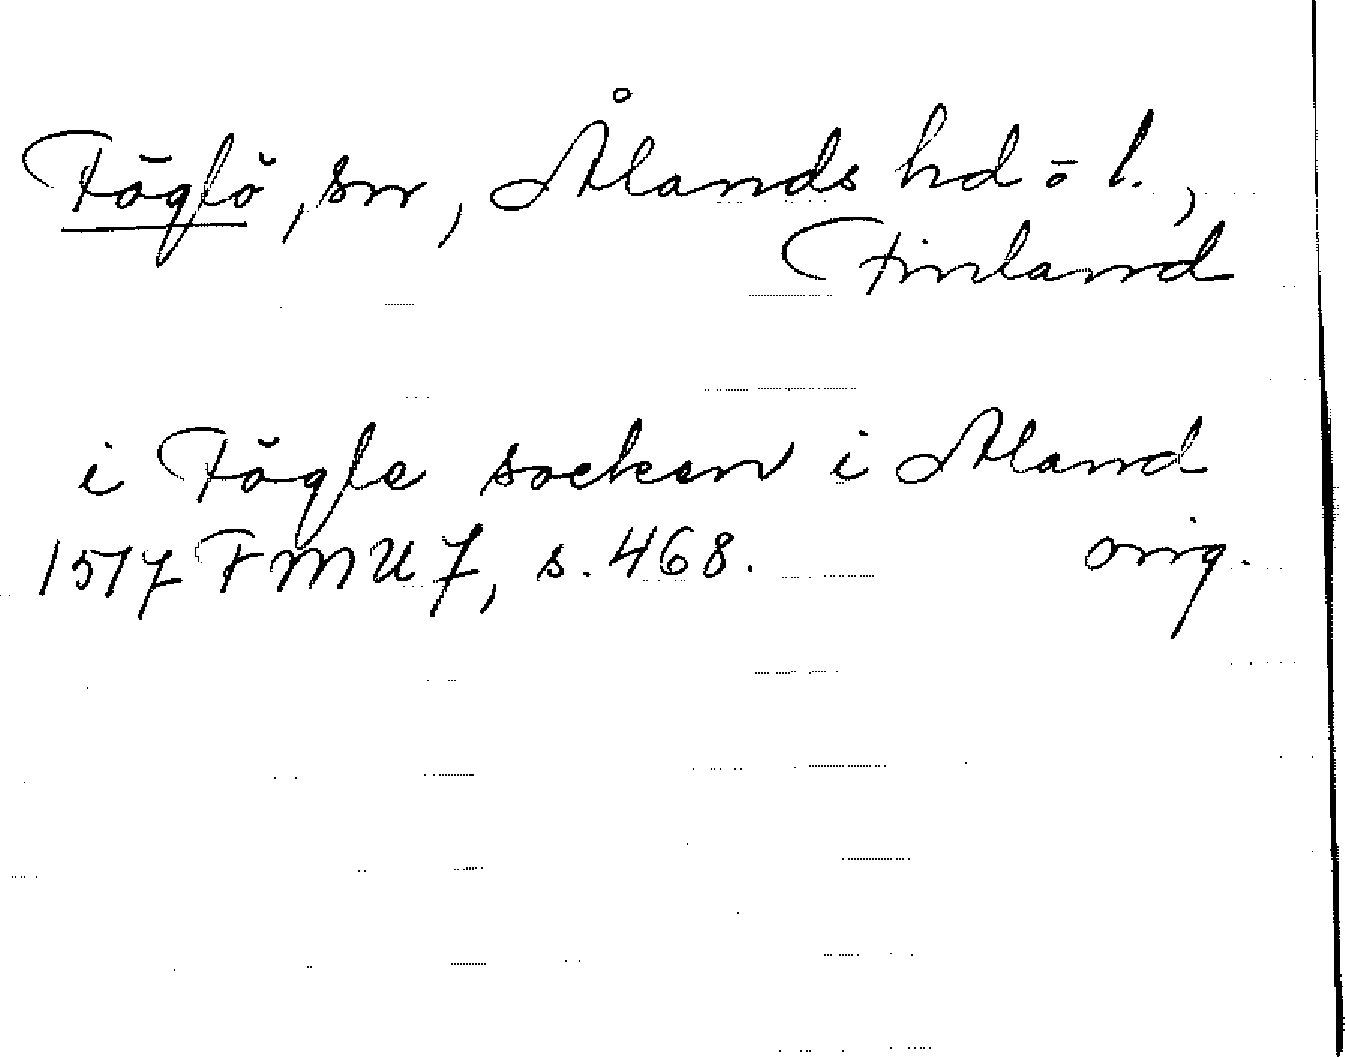 Föglö, sn, Ålands hd o l.,
Finland
i Fögle socken i Aland
1517 FMU 7, s. 468. orig.